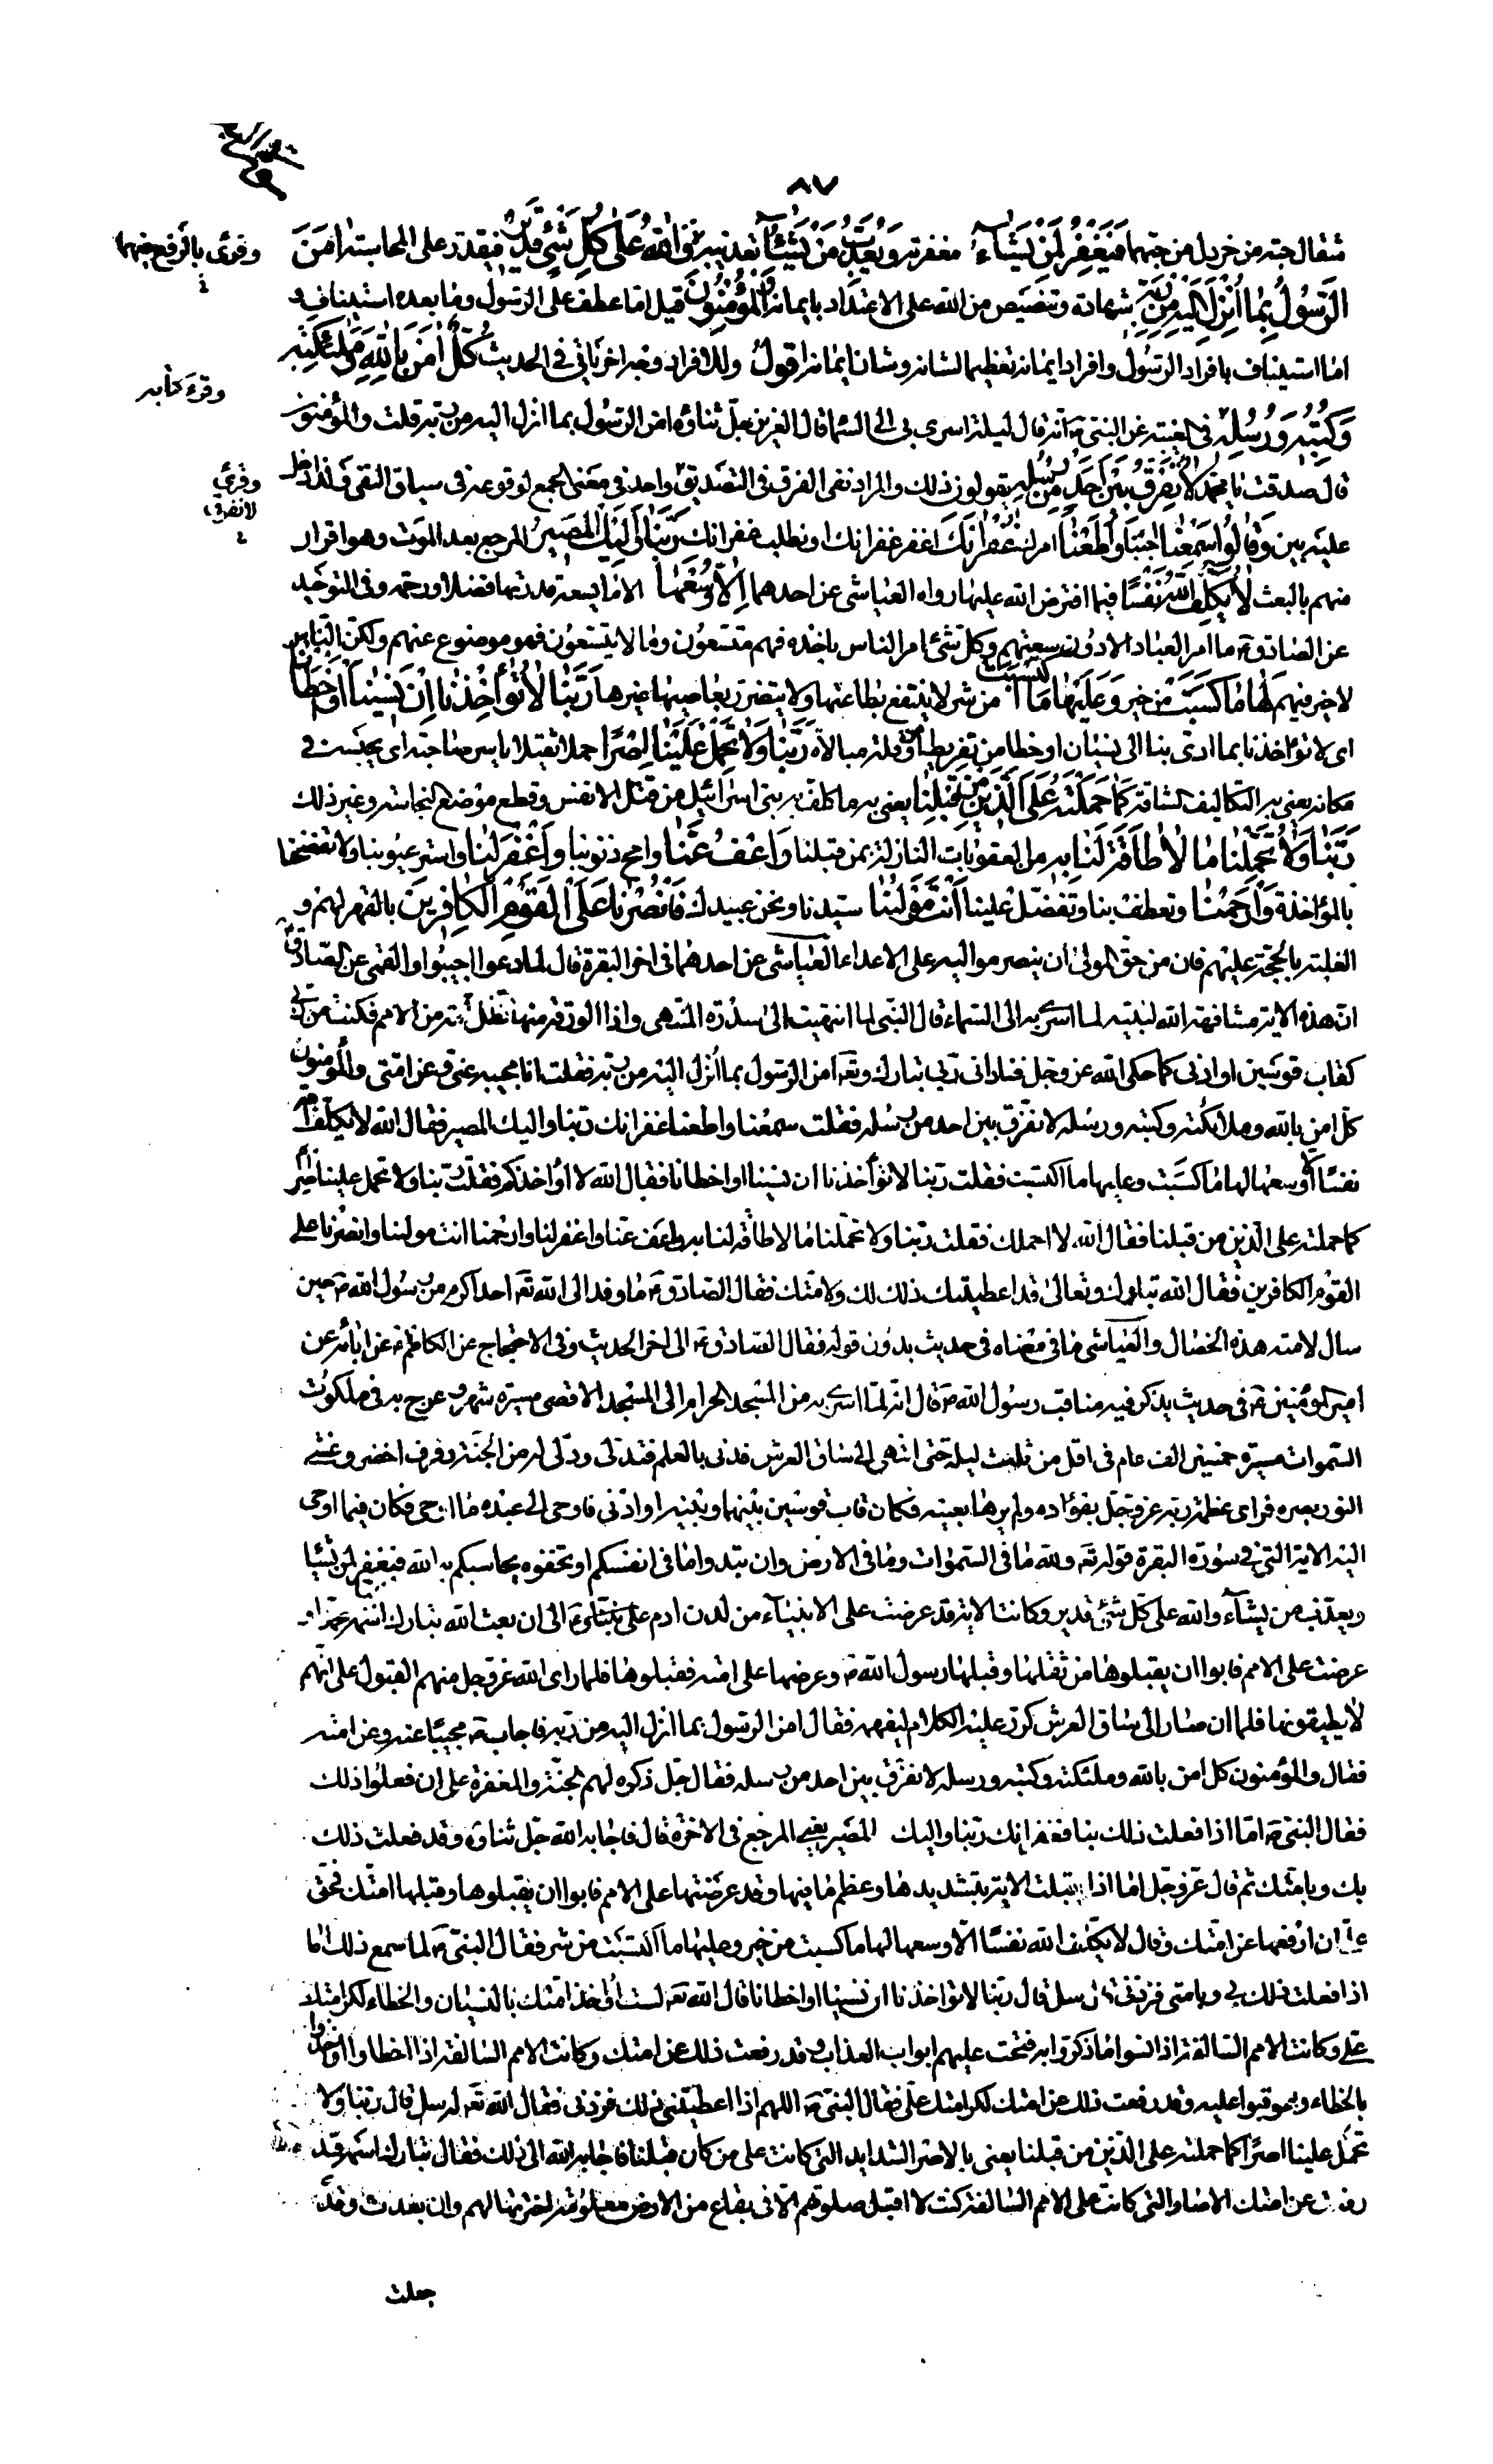 ٨٧
مثقال حبة من خردل من حبهما فَيَغْفِرُ لِمَنْ يَشَاءُ مغفرته وَيُعَذِّبُ مَنْ يَشَاءُ تعذيبه وَاللّٰهُ عَلَىٰ كُلِّ شَيْءٍ قَدِيرٌ فيقدر على المحاسبة اٰمَنَ
وقرئ بالرفع فيهما
الرَّسُولُ بِمَا اُنْزِلَ اِلَيْهِ مِنْ رَبِّهِ شهادة وتنصيص من الله على الاعتداد بايمانه وَالْمُؤْمِنُونَ قيل اما عطف على الرسول وما بعده استيناف و
اما استيناف بافراد الرسول وافراد ايمانه تعظيما لشانه وشان ايمانه اقول وللافراد وجه اخر ياتي في الحديث كُلٌّ اٰمَنَ بِاللّٰهِ وَمَلٰئِكَتِهِ
وقرء كتابه
وَكُتُبِهِ وَرُسُلِهِ في الغيبة عن النبي ص انه قال ليلة اسرى بي الى السماء قال العزيز جل ثناؤه امن الرسول بما انزل اليه من ربه قلت والمؤمنون
قال صدقت يا محمد لَا نُفَرِّقُ بَيْنَ اَحَدٍ مِنْ رُسُلِهِ يقولون ذلك والمراد نفى الفرق في التصديق واحد في معنى الجمع لوقوعه في سياق النفى ولذا دخل
وقرئ لا يفرق
عليه بين وَقَالُوا سَمِعْنَا اجبنا وَاَطَعْنَا امرك غُفْرَانَكَ اغفر غفرانك او نطلب غفرانك رَبَّنَا وَاِلَيْكَ الْمَصِيرُ المرجع بعد الموت وهو اقرار
منهم بالبعث لَا يُكَلِّفُ اللّٰهُ نَفْسًا فيما افترض الله عليها رواه العياشي عن احدهما اِلَّا وُسْعَهَا الا ما يسعه قدرتها فضلا ورحمة وفي التوحيد
عن الصادق ع ما امر العباد الا دون سعتهم وكل شئ امر الناس باخذه فهم متسعون وما لا يتسعون فهو موضوع عنهم ولكن الناس
لا خير فيهم لَهَا مَا كَسَبَتْ من خير وَعَلَيْهَا مَا اكْتَسَبَتْ من شر لا ينتفع بطاعتها ولا يتضرر بمعاصيها غيرها رَبَّنَا لَا تُؤَاخِذْنَا اِنْ نَسِينَا اَوْ اَخْطَأْنَا
اى لا تؤاخذنا بما ادى بنا الى نسيان او خطا من تفريط او قلة مبالاة رَبَّنَا وَلَا تَحْمِلْ عَلَيْنَا اِصْرًا حملا ثقيلا ياسر صاحبه اى يحبسه في
مكانه يعنى به التكاليف الشاقة كَمَا حَمَلْتَهُ عَلَى الَّذِينَ مِنْ قَبْلِنَا يعنى به ما كلف به بنى اسرائيل من قتل الانفس وقطع موضع النجاسة وغير ذلك
رَبَّنَا وَلَا تُحَمِّلْنَا مَا لَا طَاقَةَ لَنَا بِهِ من العقوبات النازلة بمن قبلنا وَاعْفُ عَنَّا وامح ذنوبنا وَاغْفِرْ لَنَا واستر عيوبنا ولا تفضحنا
بالمؤاخذة وَارْحَمْنَا وتعطف بنا وتفضل علينا اَنْتَ مَوْلٰينَا سيدنا ونحن عبيدك فَانْصُرْنَا عَلَى الْقَوْمِ الْكَافِرِينَ بالقهر لهم و
الغلبة بالحجة عليهم فان من حق المولى ان ينصر مواليه على الاعداء العياشي عن احدهما في اخر البقرة قال لما دعوا اجيبوا والقمي عن الصادق ع
ان هذه الاية مشافهة الله لنبيه لما اسرى به الى السماء قال النبي لما انتهيت الى سدرة المنتهى واذا الورقة منها تظل امة من الامم فكنت من ربي
كقاب قوسين او ادنى كما حكى الله عز وجل فناداني ربي تبارك وتعالى امن الرسول بما انزل اليه من ربه فقلت انا مجيبه عني وعن امتي والمؤمنون
كل امن بالله وملائكته وكتبه ورسله لا نفرق بين احد من رسله فقلت سمعنا واطعنا غفرانك ربنا واليك المصير فقال الله لا يكلف الله
نفسًا الا وسعها لها ما كسبت وعليها ما اكتسبت فقلت ربنا لا تؤاخذنا ان نسينا او اخطانا فقال الله لا اؤاخذك فقلت ربنا ولا تحمل علينا اصرا
كما حملته على الذين من قبلنا فقال الله لا احملك فقلت ربنا ولا تحملنا ما لا طاقة لنا به واعف عنا واغفر لنا وارحمنا انت مولينا وانصرنا على
القوم الكافرين فقال الله تبارك وتعالى قد اعطيتك ذلك لك ولامتك فقال الصادق ع ما وفد الى الله تعالى احد اكرم من رسول الله ص حين
سال لامته هذه الخصال والعياشي ما في معناه في حديث بدون قوله فقال الصادق ع الى اخر الحديث وفي الاحتجاج عن الكاظم ع عن ابائه عن
امير المؤمنين ع في حديث يذكر فيه مناقب رسول الله ص قال انه لما اسرى به من المسجد الحرام الى المسجد الاقصى مسيرة شهر وعرج به في ملكوت
السموات مسيرة خمسين الف عام في اقل من ثلث ليلة حتى انتهى الى ساق العرش فدنى بالعلم فتدلى ودلى له من الجنة رفرف اخضر وغشى
النور بصره فراى عظمة ربه عز وجل بفؤاده ولم يرها بعينه فكان قاب قوسين بينها وبينه او ادنى فاوحى الى عبده ما اوحى فكان فيما اوحى
اليه الاية التي في سورة البقرة قوله تعالى ولله ما في السموات وما في الارض وان تبدوا ما في انفسكم او تخفوه يحاسبكم به الله فيغفر لمن يشاء
ويعذب من يشاء والله على كل شئ قدير وكانت الاية قد عرضت على الانبياء من لدن ادم على نبينا و الى ان بعث الله تبارك اسمه محمدا و
عرضت على الامم فابوا ان يقبلوها من ثقلها وقبلها رسول الله ص وعرضها على امته فقبلوها فلما راى الله عز وجل منهم القبول على انهم
لا يطيقونها فلما ان صار الى ساق العرش كرر عليه الكلام ليفهمه فقال امن الرسول بما انزل اليه من ربه فاجاب ص مجيبًا عنه وعن امته
فقال والمؤمنون كل امن بالله وملئكته وكتبه ورسله لا نفرق بين احد من رسله فقال جل ذكره لهم الجنة والمغفرة على ان فعلوا ذلك
فقال النبي ص اما اذا فعلت ذلك بنا فغفرانك ربنا واليك المصير يعنى المرجع في الاخرة قال فاجابه الله جل ثناؤه وقد فعلت ذلك
بك وبامتك ثم قال عز وجل اما اذا قبلت الاية بتشديدها وعظم ما فيها وقد عرضتها على الامم فابوا ان يقبلوها وقبلها امتك فحق
علي ان ارفعها عن امتك وقال لا يكلف الله نفسًا الا وسعها لها ما كسبت من خير وعليها ما اكتسبت من شر فقال النبي ص لما سمع ذلك اما
اذا فعلت ذلك بي وبامتي فزدني قال سل قال ربنا لا تؤاخذنا ان نسينا او اخطانا قال الله تعالى لست اؤاخذ امتك بالنسيان والخطاء لكرامتك
علي وكانت الامم السالفة اذا نسوا ما ذكروا به فتحت عليهم ابواب العذاب وقد رفعت ذلك عن امتك وكانت الامم السالفة اذا اخطاوا اخذوا
بالخطاء وعوقبوا عليه وقد رفعت ذلك عن امتك لكرامتك علي فقال النبي ص اللهم اذا اعطيتني ذلك فزدني فقال الله تعالى له سل قال ربنا ولا
تحمل علينا اصرًا كما حملته على الذين من قبلنا يعنى بالاصر الشدايد التي كانت على من كان قبلنا فاجابه الله الى ذلك فقال تبارك اسمه قد
رفعت عن امتك الاصار التي كانت على الامم السالفة كنت لا اقبل صلوتهم الا في بقاع من الارض معلومة اخترتها لهم وان بعدت وقد
جعلت